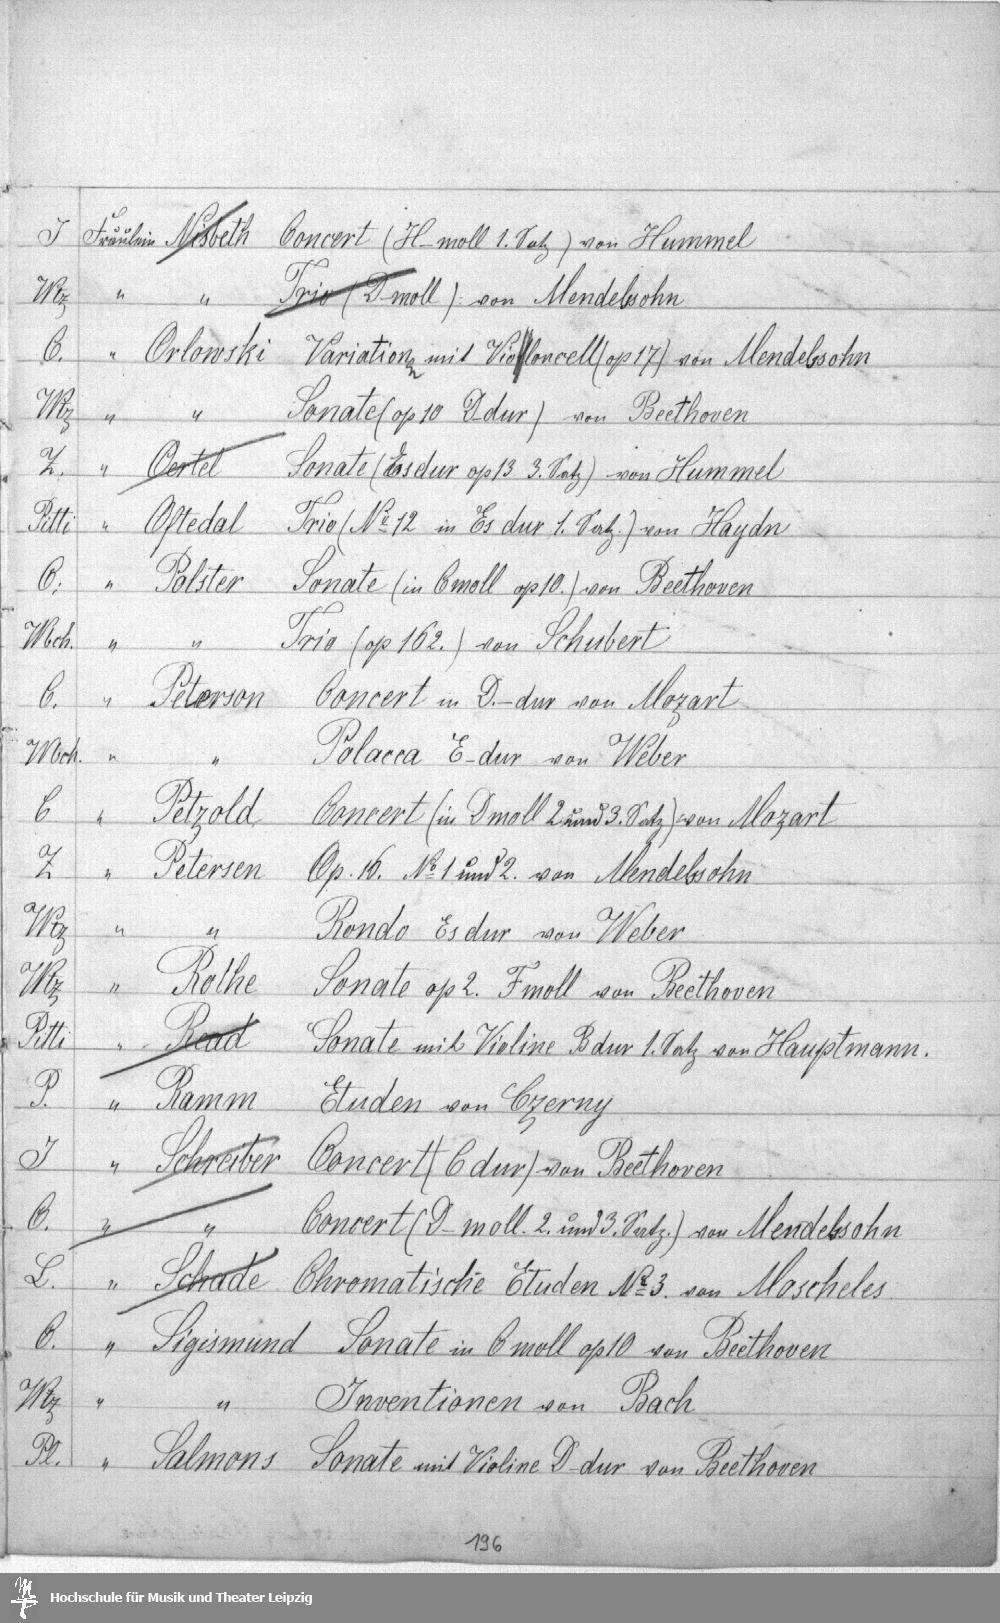 J Fräulein Nisbeth Concert (H-moll 1. Satz) von Hummel
Wtz " " Trio (D-moll) von Mendelssohn
C. " Orlowski Variation mit Violloncell (op 17) von Mendelssohn
Wtz " " Sonate (op 10 D-dur) von Beethoven
Z. " Oertel Sonate (Es dur op 13 3. Satz) von Hummel
Pitti " Oftedal Trio (No 12 in Es dur 1. Satz.) von Haydn
C. " Polster Sonate (in C moll op 10.) von Beethoven
Wbch. " " Trio (op 162.) von Schubert
C. " Peterson Concert in D.-dur von Mozart
Wbch. " " Polacca E-dur von Weber
C " Petzold Concert (in D moll 2 und 3. Satz) von Mozart
Z " Petersen Op. 16. No 1 und 2. von Mendelssohn
Wtz " " Rondo Es dur von Weber
Wtz " Rothe Sonate op 2. F moll von Beethoven
Pitti " Read Sonate mit Violine B dur 1. Satz von Hauptmann.
P. " Ramm Etuden von Czerny
J " Schreiber Concert (C dur) von Beethoven
C. " " Concert (D-moll. 2. und 3. Satz.) von Mendelssohn
L. " Schade Chromatische Etuden No 3. von Moscheles
C. " Sigismund Sonate in C moll op 10 von Beethoven
Wtz " " Inventionen von Bach
Pl. " Salmons Sonate mit Violine D-dur von Beethoven
196
Hochschule für Musik und Theater Leipzig